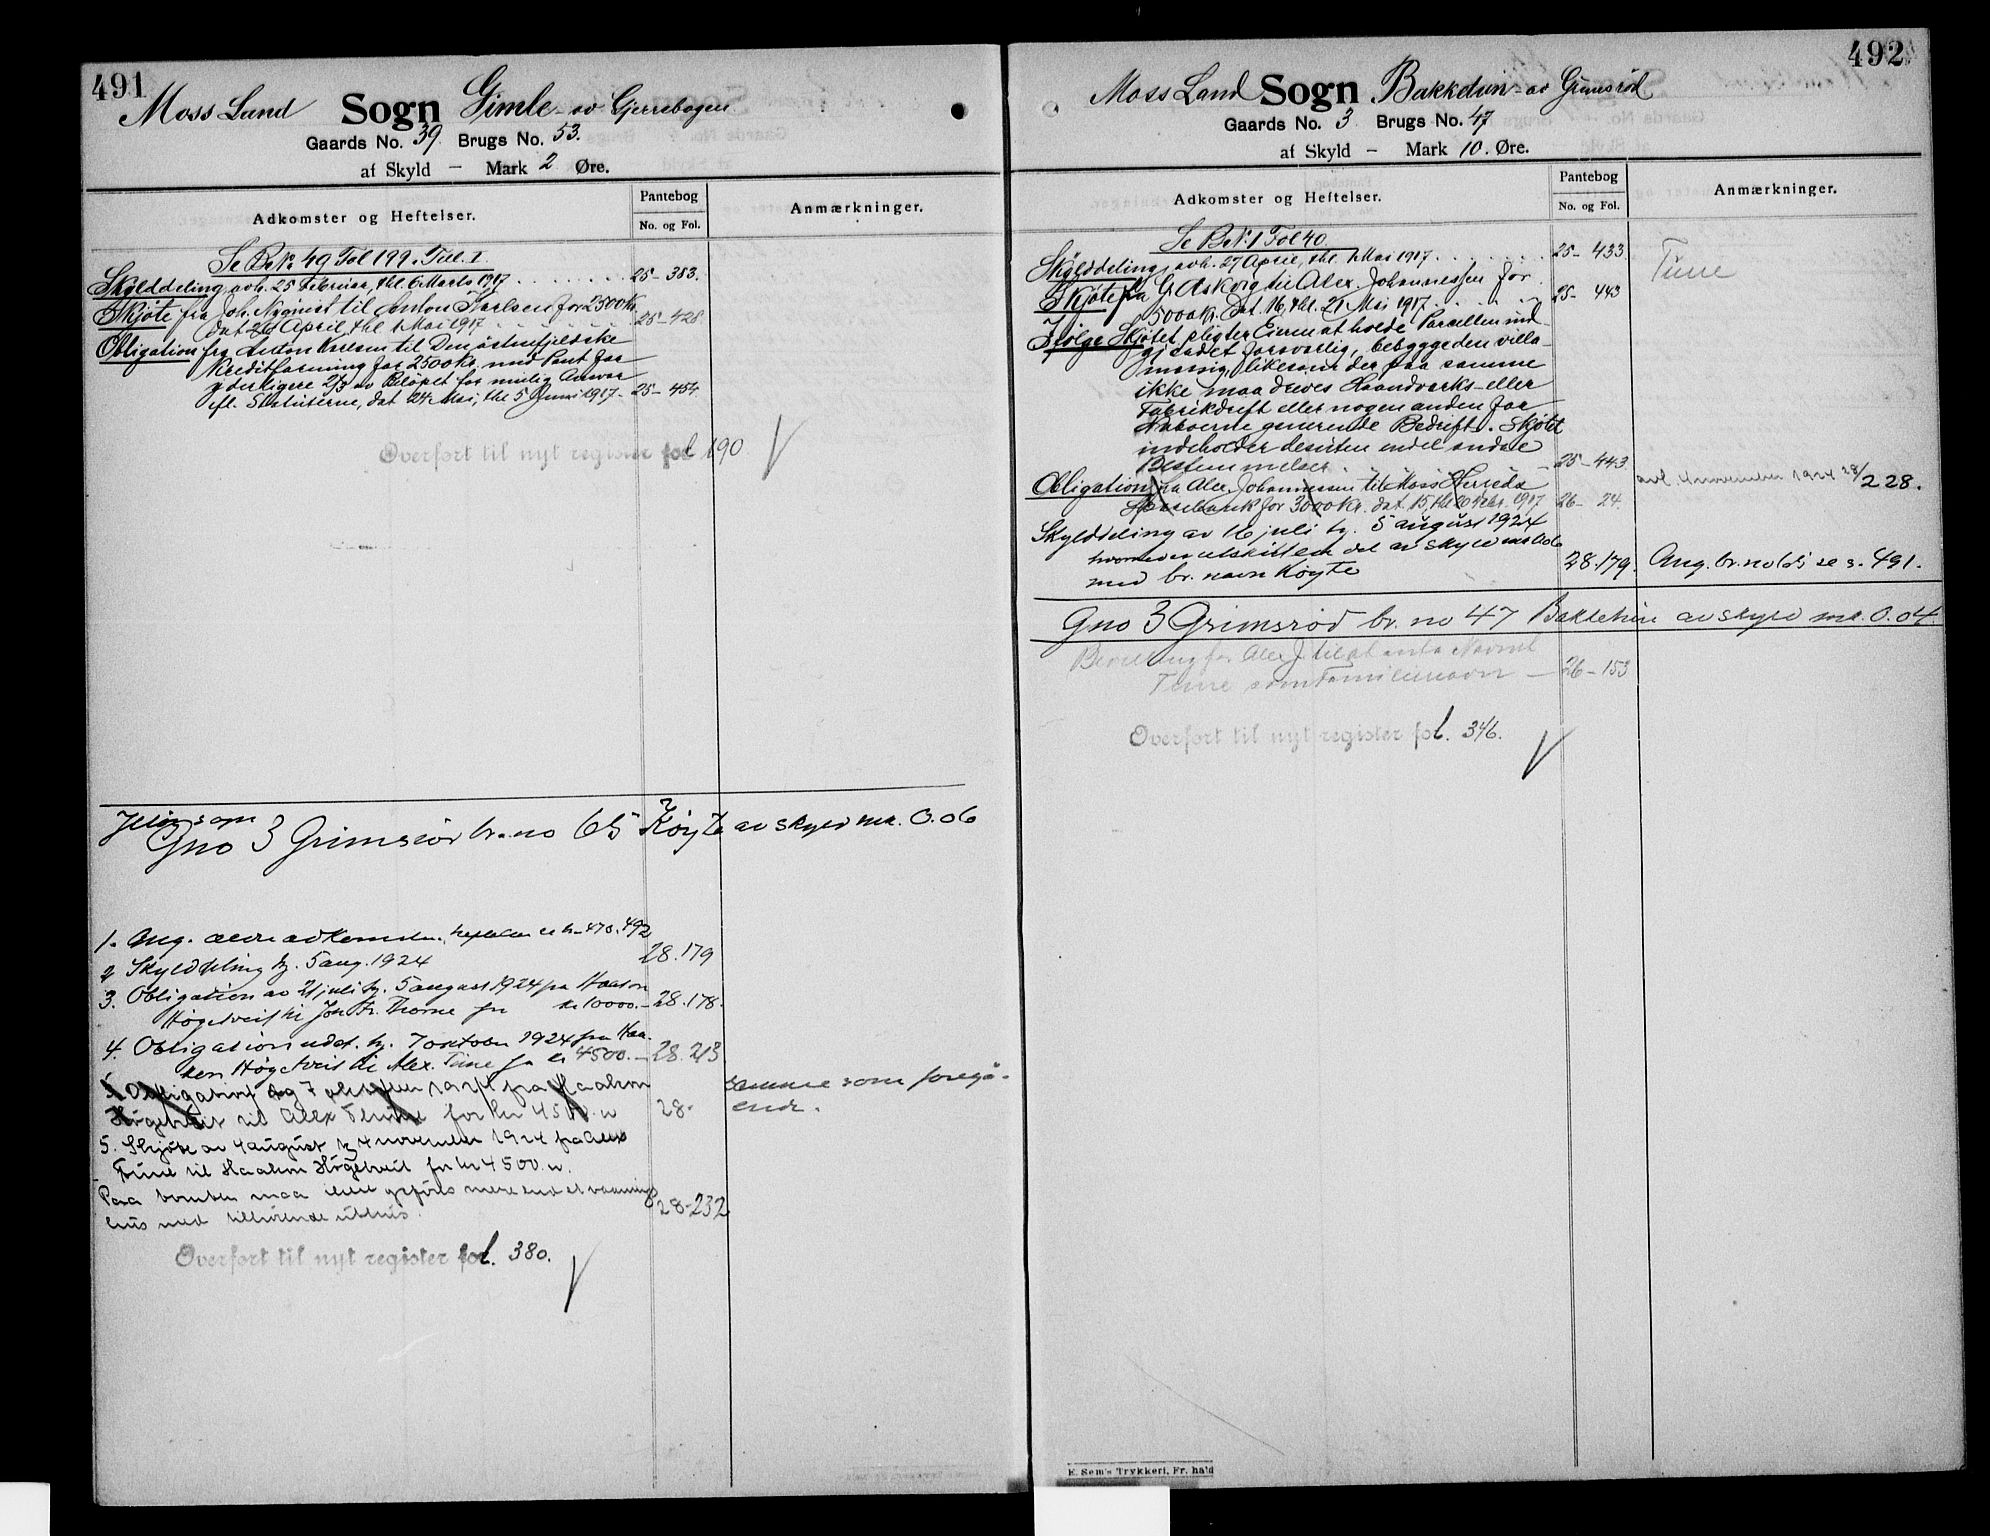 491
Moss Land Sogn Gimle av Gjerrebogen
Gaards No. 39 Brugs No. 53.
af Skyld — Mark 2 Øre.
Adkomster og Heftelser.
Pantebog
No. og Fol.
Anmærkninger.
Se B.No. 49 Fol 199. Till. I
Skylddeling avh. 25 Februar, thl. 6 Marts 1917 25 - 383.
Skjøte fra Joh. Nyquist til Anton Karlsen for 2500 Kr.
dat April, thl. 1 Mai 1917 25 - 428
Obligation fra Anton Karlsen til Den østenfjeldske
Kreditforening for 2500 Kr. med Pant for
yderligere 2/3 av Beløpet for mulig Ansvar
efl. Statuterne, dat. 24 Mai, thl. 5 Juni 1917 - 25 - 454
Overført til nyt register fol 190
Jeløy sogn
Gno 3 Grimsrød br. no 65 Køyte av skyld mk. 0.06
1. Ang. ældre adkomster, heftelser se 470. 492
2 Skylddeling tg. 5 aug. 1924 28.179
3. Obligation av 21 juli tg. 5 august 1924 fra Haakon
Høgetveit til Thorne for kr 10000.— 28.178.
4. Obligation udat. tg. 7 oktober 1924 fra Haa-
kon Høgetveit til Alex. Tune for kr 4500.— 28.213
5. Obligation tg 7 oktober 1924 fra Haakon
Høgetveit til Alex Tune for kr 4500.- 28-
samme som foregå-
ende.
5. Skjøte av 4 august tg 4 november 1924 fra Alex
Tune til Haakon Høgetveit for kr 4500.-
Paa tomten maa ikke opføres mere end et vaanings
hus med tilhørende uthus. 28-232
Overført til nyt register fol. 380.
492
Moss Land Sogn Bakketun av Grimsrød
Gaards No. 3 Brugs No. 47
af Skyld — Mark 10. Øre.
Adkomster og Heftelser.
Pantebog
No. og Fol.
Anmærkninger.
Se B.No. 1 Fol 40.
Skylddeling avh. 27 April, thl. 1 Mai 1917 25 - 433.
Tune
Skjøte fra Askorg til Alex. Johannessen for
5000 Kr. Dat. 16, thl. 21 Mai 1917 25 - 443
Ifølge Skjøtet pligter Eieren at holde Parcellen ind-
gjerdet forsvarlig, bebygge den villa-
mæssig, likesom der paa samme
ikke maa drives Haandverks- eller
Fabrikdrift eller nogen anden for
Naboerne generende Bedrift. Skjøtet
indeholder desuten endel andre
Bestemmelser. 25 - 443
Obligation fra Alex. Johannessen til Moss Herreds
Sparebank for 3000 Kr. dat. 15, thl. 1917 26 - 24.
avl. 4 november 1924 28/228.
Skylddeling av 16 juli tg. 5 august 1924
hvorved er utskilt en del av skyld mk 0.06
med br. navn Køyte 28.179. Ang. br. no 65 se s. 491.
Gno 3 Grimsrød br. no 47 Bakketun av skyld mk. 0.04.
Bevilling for Alex J. til at anta Navnet
Tune som Familienavn — 26 - 153
Overført til nyt register fol. 346.
E. Sem's Trykkeri, Fr. hald